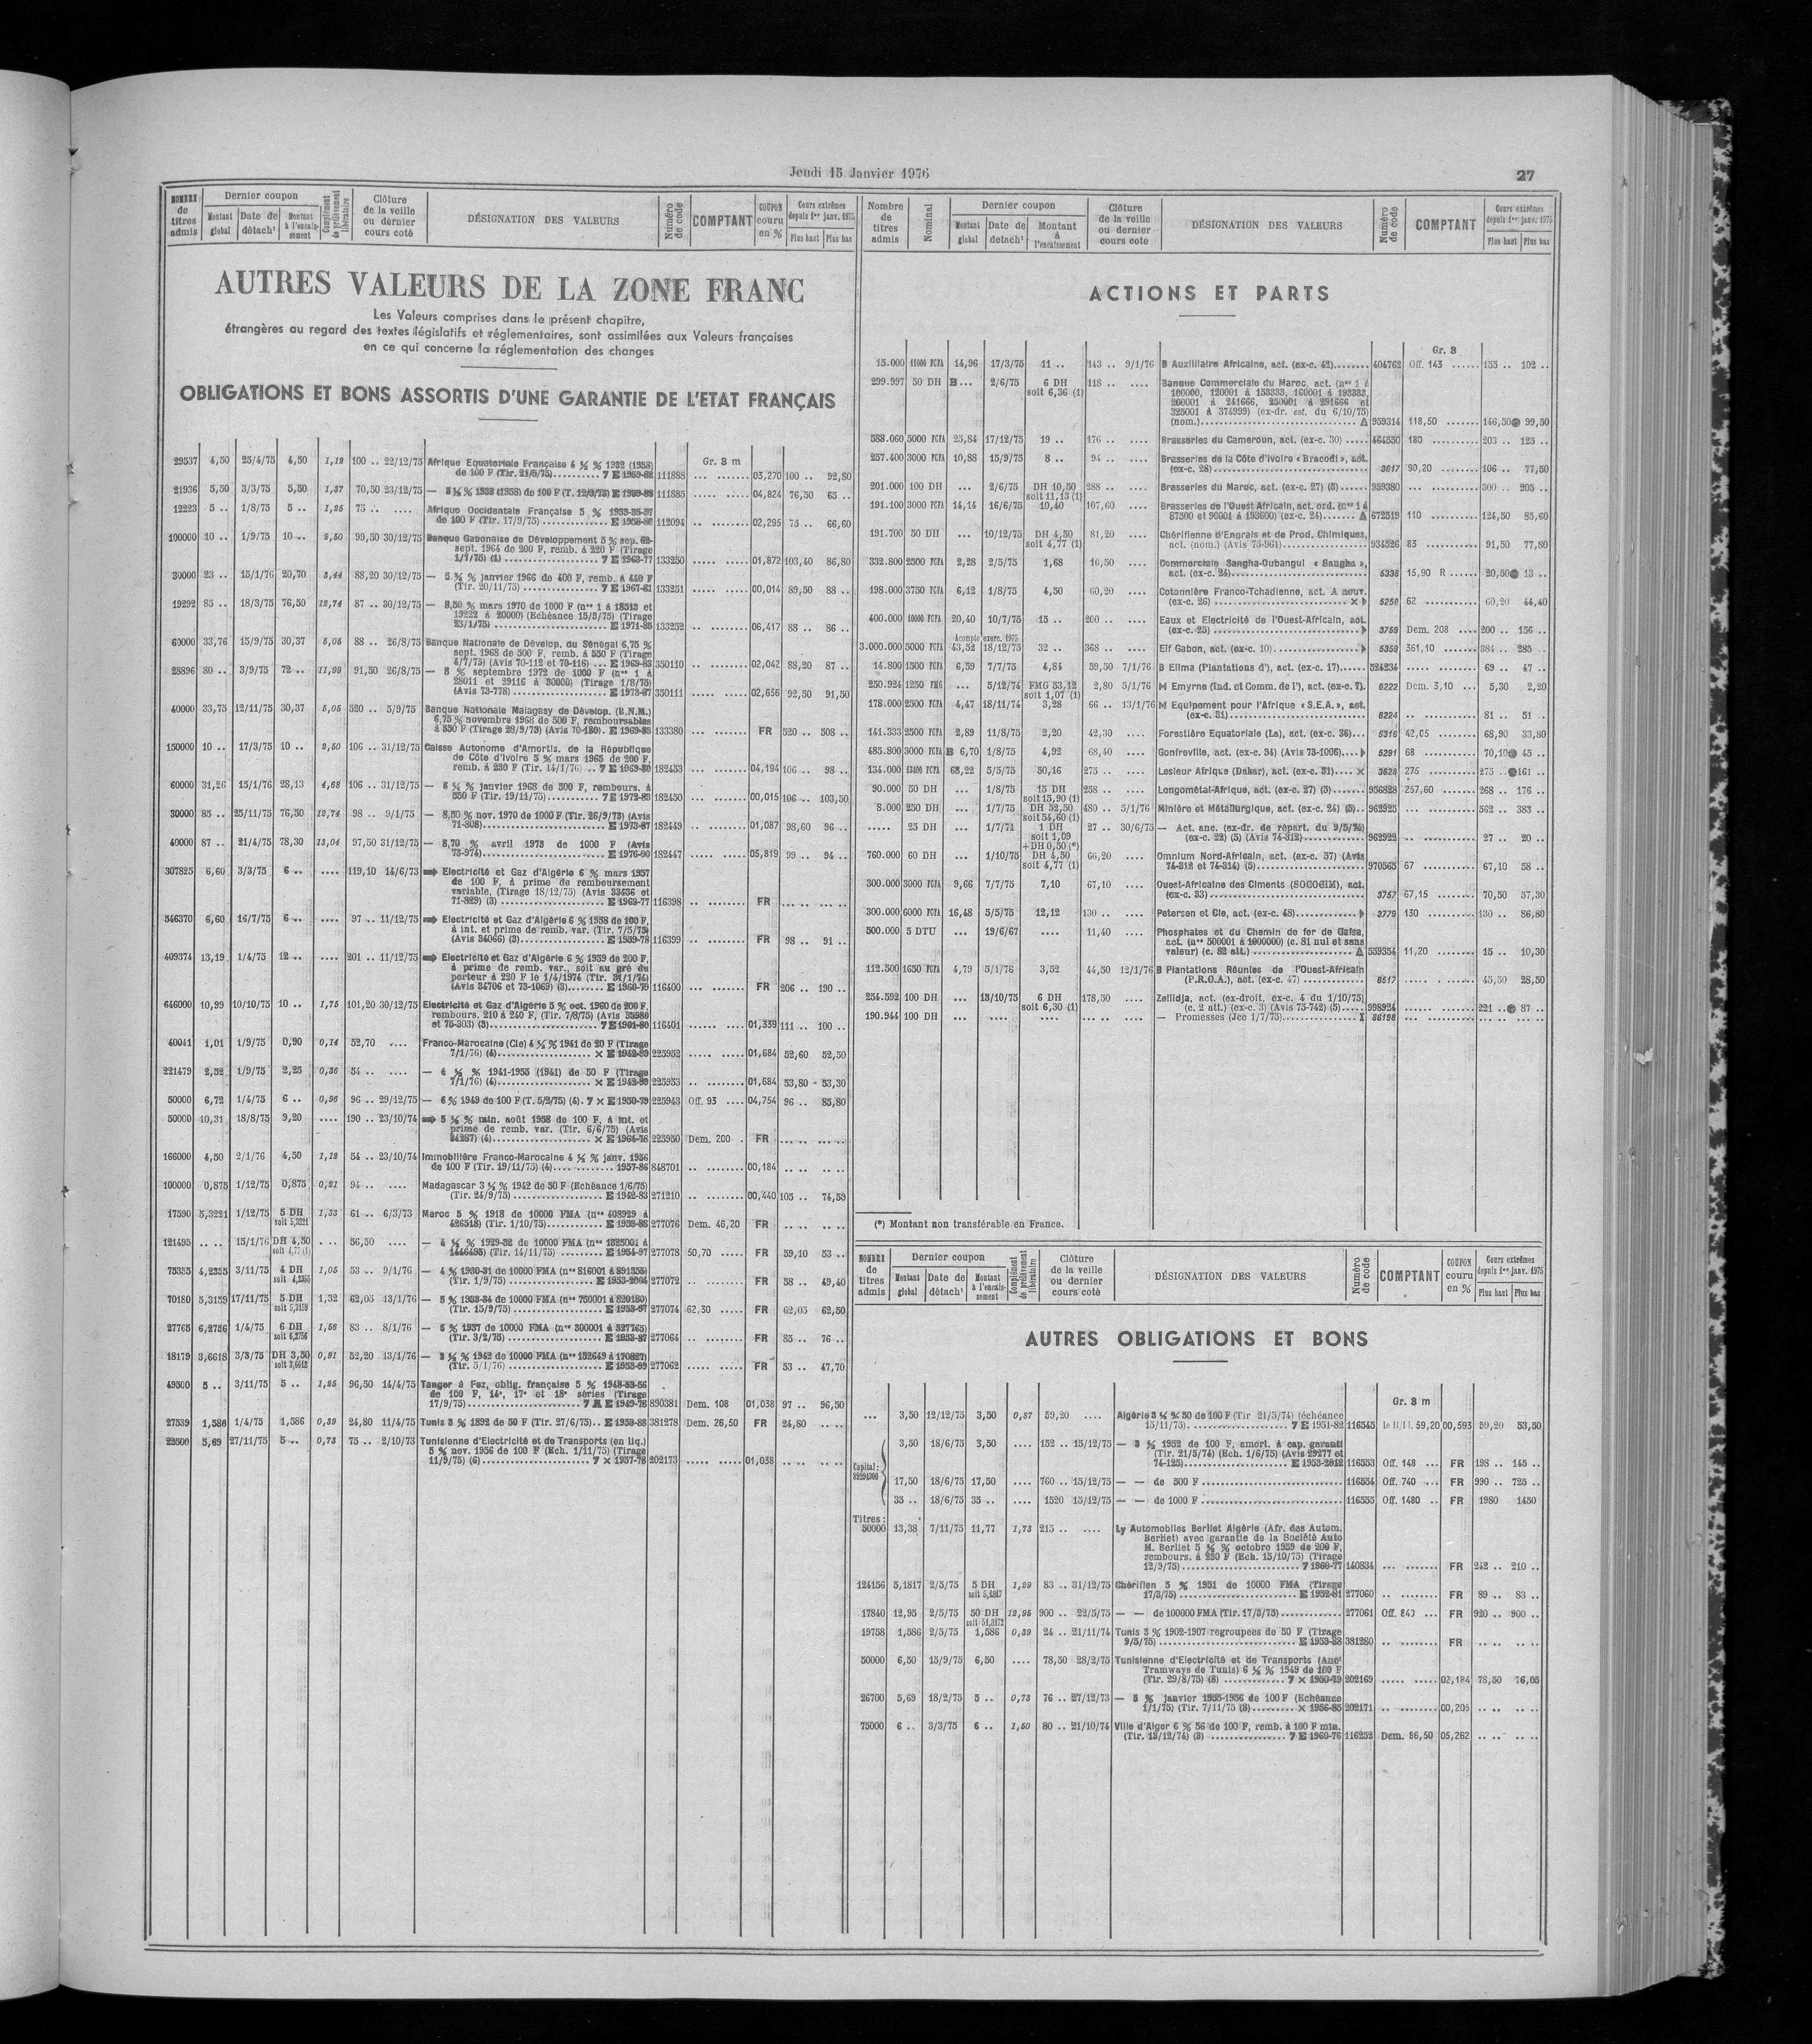 Jeudi 15 Janvier 1976
27
NOMBRE de titres admis
Dernier coupon
Montant global
Date de détach^t
Montant à l'encaissement
Complément de prélèvement libératoire
Clôture de la veille ou dernier cours coté
DÉSIGNATION DES VALEURS
Numéro de code
COMPTANT
COUPON couru en %
Cours extrêmes depuis 1er janv. 1975
Plus haut
Plus bas
AUTRES VALEURS DE LA ZONE FRANC
Les Valeurs comprises dans le présent chapitre,
étrangères au regard des textes législatifs et réglementaires, sont assimilées aux Valeurs françaises
en ce qui concerne la réglementation des changes
OBLIGATIONS ET BONS ASSORTIS D'UNE GARANTIE DE L'ETAT FRANÇAIS
Gr. 8 m
29537 4,50 25/4/75 4,50 1,12 100 .. 22/12/75 Afrique Equatoriale Française 4 ½ % 1952 (1953)
de 100 F (Tir. 21/5/75) 7 E 1959-82 111888 03,270 100 .. 92,80
21936 5,50 3/3/75 5,50 1,37 70,50 23/12/75 111885 04,824 76,50 65 ..
12223 5 .. 1/8/75 5 .. 1,25 75 .. .... Afrique Occidentale Française 5 %
de 100 F (Tir. 17/9/75) 112094 02,295 75 .. 66,60
100000 10 .. 1/9/75 10 .. 2,50 99,50 30/12/75 Banque Gabonaise de Développement 5 % sep. 62-
sept. 1964 de 200 F, remb. à 220 F (Tirage
1/7/75) (1) 7 E 1963-77 133250 01,872 103,40 86,80
30000 23 .. 15/1/76 20,70 3,44 88,20 30/12/75 — 5 ¾ % janvier 1966 de 400 F, remb. à 440 F
(Tir. 20/11/75) 7 E 1967-81 133251 00,014 89,50 88 ..
19292 85 .. 18/3/75 76,50 12,74 87 .. 30/12/75 — 8,50 % mars 1970 de 1000 F (nos 1 à 18513 et
19222 à 20000) (Echéance 15/3/75) (Tirage
23/1/75) E 1971-85 133252 06,417 88 .. 86 ..
60000 33,76 15/9/75 30,37 5,05 88 .. 26/8/75 Banque Nationale de Dévelop. du Sénégal 6,75 %
sept. 1968 de 500 F, remb. à 550 F (Tirage
4/7/75) (Avis 70-112 et 70-116) E 1969-83 350110 02,042 88,20 87 ..
28896 80 .. 3/9/75 72 .. 11,99 91,50 26/8/75 — 8 % septembre 1972 de 1000 F (nos 1 à
28011 et 29116 à 30000) (Tirage 1/8/75)
(Avis 73-778) E 1973-87 350111 02,656 92,50 91,50
40000 33,75 12/11/75 30,37 5,05 520 .. 5/9/75 Banque Nationale Malagasy de Dévelop. (B.N.M.)
6,75 % novembre 1968 de 500 F, remboursables
à 550 F (Tirage 26/9/73) (Avis 70-180) E 1969-85 133380 FR 520 .. 508 ..
150000 10 .. 17/3/75 10 .. 2,50 106 .. 31/12/75 Caisse Autonome d'Amortis. de la République
de Côte d'Ivoire 5 % mars 1965 de 200 F,
remb. à 230 F (Tir. 14/1/76) .. 7 E 1969-80 182453 04,194 106 .. 98 ..
60000 31,26 15/1/76 28,13 4,68 106 .. 31/12/75 — 6 ¼ % janvier 1968 de 500 F, rembours. à
550 F (Tir. 19/11/75) 7 E 1972-83 182450 00,015 106 .. 103,50
30000 85 .. 25/11/75 76,50 12,74 98 .. 9/1/75 — 8,50 % nov. 1970 de 1000 F (Tir. 26/9/73) (Avis
71-808) E 1973-87 182449 01,087 98,60 96 ..
40000 87 .. 21/4/75 78,30 13,04 97,50 31/12/75 — 8,70 % avril 1973 de 1000 F (Avis
73-974) E 1976-90 182447 05,819 99 .. 94 ..
307825 6,60 3/3/75 6 .. .... 119,10 14/6/73 Electricité et Gaz d'Algérie 6 % mars 1957
de 100 F, à prime de remboursement
variable, (Tirage 18/12/75) (Avis 33436 et
71-829) (3) E 1963-77 116398 FR
546370 6,60 16/7/75 6 .. .... 97 .. 11/12/75 Electricité et Gaz d'Algérie 6 % 1958 de 100 F,
à int. et prime de remb. var. (Tir. 7/5/75)
(Avis 34066) (3) E 1959-78 116399 FR 98 .. 91 ..
409374 13,19 1/4/75 12 .. .... 201 .. 11/12/75 Electricité et Gaz d'Algérie 6 % 1959 de 200 F,
à prime de remb. var., soit au gré du
porteur à 220 F le 1/4/1974 (Tir. 31/1/74)
(Avis 34706 et 73-1069) (3) E 1960-79 116400 FR 206 .. 190 ..
646000 10,99 10/10/75 10 .. 1,75 101,20 30/12/75 Electricité et Gaz d'Algérie 5 % oct. 1960 de 200 F,
rembours. 210 à 240 F, (Tir. 7/8/75) (Avis 35980
et 75-303) (3) 7 E 1961-80 116401 01,339 111 .. 100 ..
40041 1,01 1/9/75 0,90 0,14 52,70 .... Franco-Marocaine (Cie) 4 ½ % 1941 de 20 F (Tirage
7/1/76) (4) × E 1942-89 225952 01,684 52,60 52,50
221479 2,52 1/9/75 2,25 0,36 54 .. .... — 4 ½ % 1941-1955 (1941) de 50 F (Tirage
7/1/76) (4) × E 1942-89 225953 01,684 53,80 53,30
50000 6,72 1/4/75 6 .. 0,96 96 .. 29/12/75 — 6 % 1949 de 100 F (T. 5/2/75) (4) . 7 × E 1950-79 225943 Off. 93 04,754 96 .. 85,80
50000 10,31 18/8/75 9,20 .... 190 .. 23/10/74 5 ½ % min. août 1958 de 100 F, à int. et
prime de remb. var. (Tir. 6/6/75) (Avis
34287) (4) × E 1964-78 225950 Dem. 200 . FR
166000 4,50 2/1/76 4,50 1,12 54 .. 23/10/74 Immobilière Franco-Marocaine 4 ½ % janv. 1956
de 100 F (Tir. 19/11/75) (4) 1957-86 848701 00,184
100000 0,875 1/12/75 0,875 0,21 94 .. .... Madagascar 3 ½ % 1942 de 50 F (Echéance 1/6/75)
(Tir. 24/9/75) E 1942-83 271210 00,440 105 .. 74,59
17590 5,3221 1/12/75 5 DH soit 5,3221 1,33 61 .. 6/3/73 Maroc 5 % 1918 de 10000 FMA (nos 408929 à
426518) (Tir. 1/10/75) E 1953-88 277076 Dem. 46,20 FR
121495 .. .. 15/1/76 DH 4,50 soit 4,77 (1) ... 56,50 .... — 4 ½ % 1929-32 de 10000 FMA (nos 1325001 à
1446495) (Tir. 14/11/75) E 1954-97 277078 50,70 FR 59,10 53 ..
75355 4,2355 3/11/75 4 DH soit 4,2355 1,05 53 .. 9/1/76 — 4 % 1930-31 de 10000 FMA (nos 816001 à 891355)
(Tir. 1/9/75) E 1953-2004 277072 FR 58 .. 49,40
70180 5,3159 17/11/75 5 DH soit 5,3159 1,32 62,05 13/1/76 — 5 % 1933-34 de 10000 FMA (nos 750001 à 820180)
(Tir. 15/9/75) E 1953-97 277074 62,30 FR 62,05 62,50
27765 6,2756 1/4/75 6 DH soit 6,2756 1,56 83 .. 8/1/76 — 6 % 1937 de 10000 FMA (nos 300001 à 327765)
(Tir. 3/2/75) E 1953-87 277064 FR 85 .. 76 ..
18179 3,6618 3/3/75 DH 3,50 soit 3,6618 0,91 52,20 13/1/76 — 3 ½ % 1942 de 10000 FMA (nos 152649 à 170827)
(Tir. 5/1/76) E 1953-99 277062 FR 53 .. 47,70
49500 5 .. 3/11/75 5 .. 1,25 96,50 14/4/75 Tanger à Fez, oblig. française 5 % 1948-53-56
de 100 F, 14e, 17e et 18e séries (Tirage
17/9/75) 7 E 1949-78 890381 Dem. 108 01,038 97 .. 96,50
27539 1,586 1/4/75 1,586 0,39 24,80 11/4/75 Tunis 3 % 1892 de 50 F (Tir. 27/6/75) .. E 1953-88 381278 Dem. 26,50 FR 24,80
22500 5,69 27/11/75 5 .. 0,73 75 .. 2/10/73 Tunisienne d'Electricité et de Transports (en liq.)
5 % nov. 1956 de 100 F (Ech. 1/11/75) (Tirage
11/9/75) (6) 7 × 1957-78 202173 01,038
Nombre de titres admis
Nominal
Dernier coupon
Montant global
Date de détach^t
Montant à l'encaissement
Clôture de la veille ou dernier cours coté
DÉSIGNATION DES VALEURS
Numéro de code
COMPTANT
Cours extrêmes depuis 1er janv. 1975
Plus haut
Plus bas
ACTIONS ET PARTS
Gr. 8
15.000 11000 FCFA 14,96 17/3/75 11 .. 143 .. 9/1/76 B Auxiliaire Africaine, act. (ex-c. 42) 404762 Off. 143 155 .. 102 ..
299.997 50 DH B ... 2/6/75 6 DH soit 6,36 (1) 118 .. .... Banque Commerciale du Maroc, act. (nos 1 à
100000, 120001 à 153333, 160001 à 193333,
200001 à 241666, 250001 à 291666 et
325001 à 374999) (ex-dr. est. du 6/10/75)
(nom.) Δ 959314 118,50 146,50 99,50
588.060 5000 FCFA 25,84 17/12/75 19 .. 176 .. .... Brasseries du Cameroun, act. (ex-c. 30) 464550 180 203 .. 125 ..
257.400 3000 FCFA 10,88 15/9/75 8 .. 94 .. .... Brasseries de la Côte d'Ivoire « Bracodi », act.
(ex-c. 28) 3617 90,20 106 .. 77,50
201.000 100 DH ... 2/6/75 DH 10,50 soit 11,13 (1) 288 .. .... Brasseries du Maroc, act. (ex-c. 27) (5) 959380 300 .. 205 ..
191.100 3000 FCFA 14,14 16/6/75 10,40 107,60 .... Brasseries de l'Ouest Africain, act. ord. (nos 1 à
87500 et 90001 à 193600) (ex-c. 24) Δ 672519 110 124,50 85,60
191.700 50 DH ... 10/12/75 DH 4,50 soit 4,77 (1) 81,20 .... Chérifienne d'Engrais et de Prod. Chimiques,
act. (nom.) (Avis 75-961) 934526 83 91,50 77,80
332.800 2500 FCFA 2,28 2/5/75 1,68 16,50 .... Commerciale Sangha-Oubangui « Sangha »,
act. (ex-c. 24) 5338 15,90 R 20,50 13 ..
198.000 3750 FCFA 6,12 1/8/75 4,50 60,20 .... Cotonnière Franco-Tchadienne, act. A nouv.
(ex-c. 26) × 5256 62 60,20 44,40
400.000 10000 FCFA 20,40 10/7/75 15 .. 200 .. .... Eaux et Electricité de l'Ouest-Africain, act.
(ex-c. 25) 3759 Dem. 208 200 .. 156 ..
Acompte exerc. 1975
3.000.000 5000 FCFA 43,52 18/12/75 32 .. 368 .. .... Elf Gabon, act. (ex-c. 10) 5359 361,10 384 .. 285 ..
14.800 1500 FCFA 6,59 7/7/75 4,84 59,50 7/1/76 B Elima (Plantations d'), act. (ex-c. 17) 524234 69 .. 47 ..
250.924 1250 FMG ... 5/12/74 FMG 53,12 soit 1,07 (1) 2,80 5/1/76 M Emyrne (Ind. et Comm. de l'), act. (ex-c. 7) 6222 Dem. 3,10 5,30 2,20
178.000 2500 FCFA 4,47 18/11/74 3,28 66 .. 13/1/76 M Equipement pour l'Afrique « S.E.A. », act.
(ex-c. 31) 6224 81 .. 51 ..
141.333 2500 FCFA 2,89 11/8/75 2,20 42,30 .... Forestière Equatoriale (La), act. (ex-c. 36) 5316 42,05 68,90 33,80
485.800 3000 FCFA B 6,70 1/8/75 4,92 68,40 .... Gonfreville, act. (ex-c. 34) (Avis 73-1006) 5291 68 70,10 45 ..
134.000 13400 FCFA 68,22 5/5/75 50,16 275 .. .... Lesieur Afrique (Dakar), act. (ex-c. 31) × 3628 275 275 .. 161 ..
90.000 50 DH ... 1/8/75 15 DH soit 15,90 (1) 258 .. .... Longométal-Afrique, act. (ex-c. 27) (5) 956828 257,60 268 .. 176 ..
8.000 250 DH ... 1/7/75 DH 32,50 soit 34,60 (1) 480 .. 5/1/76 Minière et Métallurgique, act. (ex-c. 24) (5) 962925 562 .. 383 ..
..... 25 DH ... 1/7/71 1 DH soit 1,09 + DH 0,50 (*) 27 .. 30/6/75 — Act. anc. (ex-dr. de répart. du 9/5/74)
(ex-c. 22) (5) (Avis 74-312) 962922 27 .. 20 ..
760.000 60 DH ... 1/10/75 DH 4,50 soit 4,77 (1) 66,20 .... Omnium Nord-Africain, act. (ex-c. 37) (Avis
74-312 et 74-314) (5) 970565 67 67,10 58 ..
300.000 3000 FCFA 9,66 7/7/75 7,10 67,10 .... Ouest-Africaine des Ciments (SOCOCIM), act.
(ex-c. 33) 3757 67,15 70,50 57,30
300.000 6000 FCFA 16,48 5/5/75 12,12 130 .. .... Peterson et Cie, act. (ex-c. 48) 3779 130 130 .. 86,80
500.000 5 DTU ... 19/6/67 .... 11,40 .... Phosphates et du Chemin de fer de Gafsa,
act. (nos 500001 à 1000000) (c. 81 nul et sans
valeur) (c. 82 att.) Δ 559354 11,20 15 .. 10,30
112.500 1650 FCFA 4,79 5/1/76 3,52 44,50 12/1/76 B Plantations Réunies de l'Ouest-Africain
(P.R.O.A.), act. (ex-c. 47) 6517 45,50 28,50
254.592 100 DH ... 13/10/75 6 DH soit 6,30 (1) 178,50 .... Zellidja, act. (ex-droit, ex-c. 4 du 1/10/75)
(c. 2 att.) (ex-c. 3) (Avis 75-742) (5) 998924 221 .. 87 ..
190.944 100 DH ... .... .... — Promesses (Jce 1/7/75) 36196
(*) Montant non transférable en France.
NOMBRE de titres admis
Dernier coupon
Montant global
Date de détach^t
Montant à l'encaissement
Complément de prélèvement libératoire
Clôture de la veille ou dernier cours coté
DÉSIGNATION DES VALEURS
Numéro de code
COMPTANT
COUPON couru en %
Cours extrêmes depuis 1er janv. 1975
Plus haut
Plus bas
AUTRES OBLIGATIONS ET BONS
Gr. 8 m
... 3,50 12/12/75 3,50 0,87 59,20 .... Algérie 3 ½ % 50 de 100 F (Tir 21/5/74) (échéance
15/11/75) 7 E 1951-82 116545 59,20 00,593 59,20 53,50
Capital :
3,50 18/6/75 3,50 .... 152 .. 15/12/75 — 3 ½ 1952 de 100 F, amort. à cap. garanti
(Tir. 21/5/74) (Ech. 1/6/75) (Avis 29277 et
74-125) E 1953-2012 116553 Off. 148 FR 198 .. 145 ..
17,50 18/6/75 17,50 .... 760 .. 15/12/75 — — de 500 F 116554 Off. 740 FR 990 .. 725 ..
35 .. 18/6/75 35 .. .... 1520 15/12/75 — — de 1000 F 116555 Off. 1480 .. FR 1980 1450
Titres :
50000 13,38 7/11/75 11,77 1,73 215 .. .... Ly Automobiles Berliet Algérie (Afr. des Autom.
Berliet) avec garantie de la Société Auto
M. Berliet 5 ¾ % octobre 1959 de 200 F,
rembours. à 250 F (Ech. 15/10/75) (Tirage
12/9/75) 7 1960-77 140834 FR 242 .. 210 ..
124156 5,1817 2/5/75 5 DH 1,29 83 .. 31/12/75 Chérifien 5 % 1951 de 10000 FMA (Tirage
17/3/75) E 1952-81 277060 FR 89 .. 83 ..
17840 12,95 2/5/75 50 DH 12,95 900 .. 22/5/75 — — de 100000 FMA (Tir. 17/3/75) 277061 Off. 840 FR 920 .. 900 ..
19758 1,586 2/5/75 1,586 0,39 24 .. 21/11/74 Tunis 3 % 1902-1907 regroupees de 50 F (Tirage
9/5/75) E 1953-88 381280 FR
50000 6,50 15/9/75 6,50 .... 78,50 28/2/75 Tunisienne d'Electricité et de Transports (Anc^t
Tramways de Tunis) 6 ½ % 1949 de 100 F
(Tir. 29/8/75) (8) 7 × 1950-79 202169 02,184 78,50 76,05
26700 5,69 18/2/75 5 .. 0,73 76 .. 27/12/73 — 5 % janvier 1955-1956 de 100 F (Echéance
1/1/75) (Tir. 7/11/75 (8) × 1956-85 202171 00,205
75000 6 .. 3/3/75 6 .. 1,50 80 .. 21/10/74 Ville d'Alger 6 % 56 de 100 F, remb. à 100 F min.
(Tir. 18/12/74) (3) 7 E 1960-76 116252 Dem. 86,50 05,262